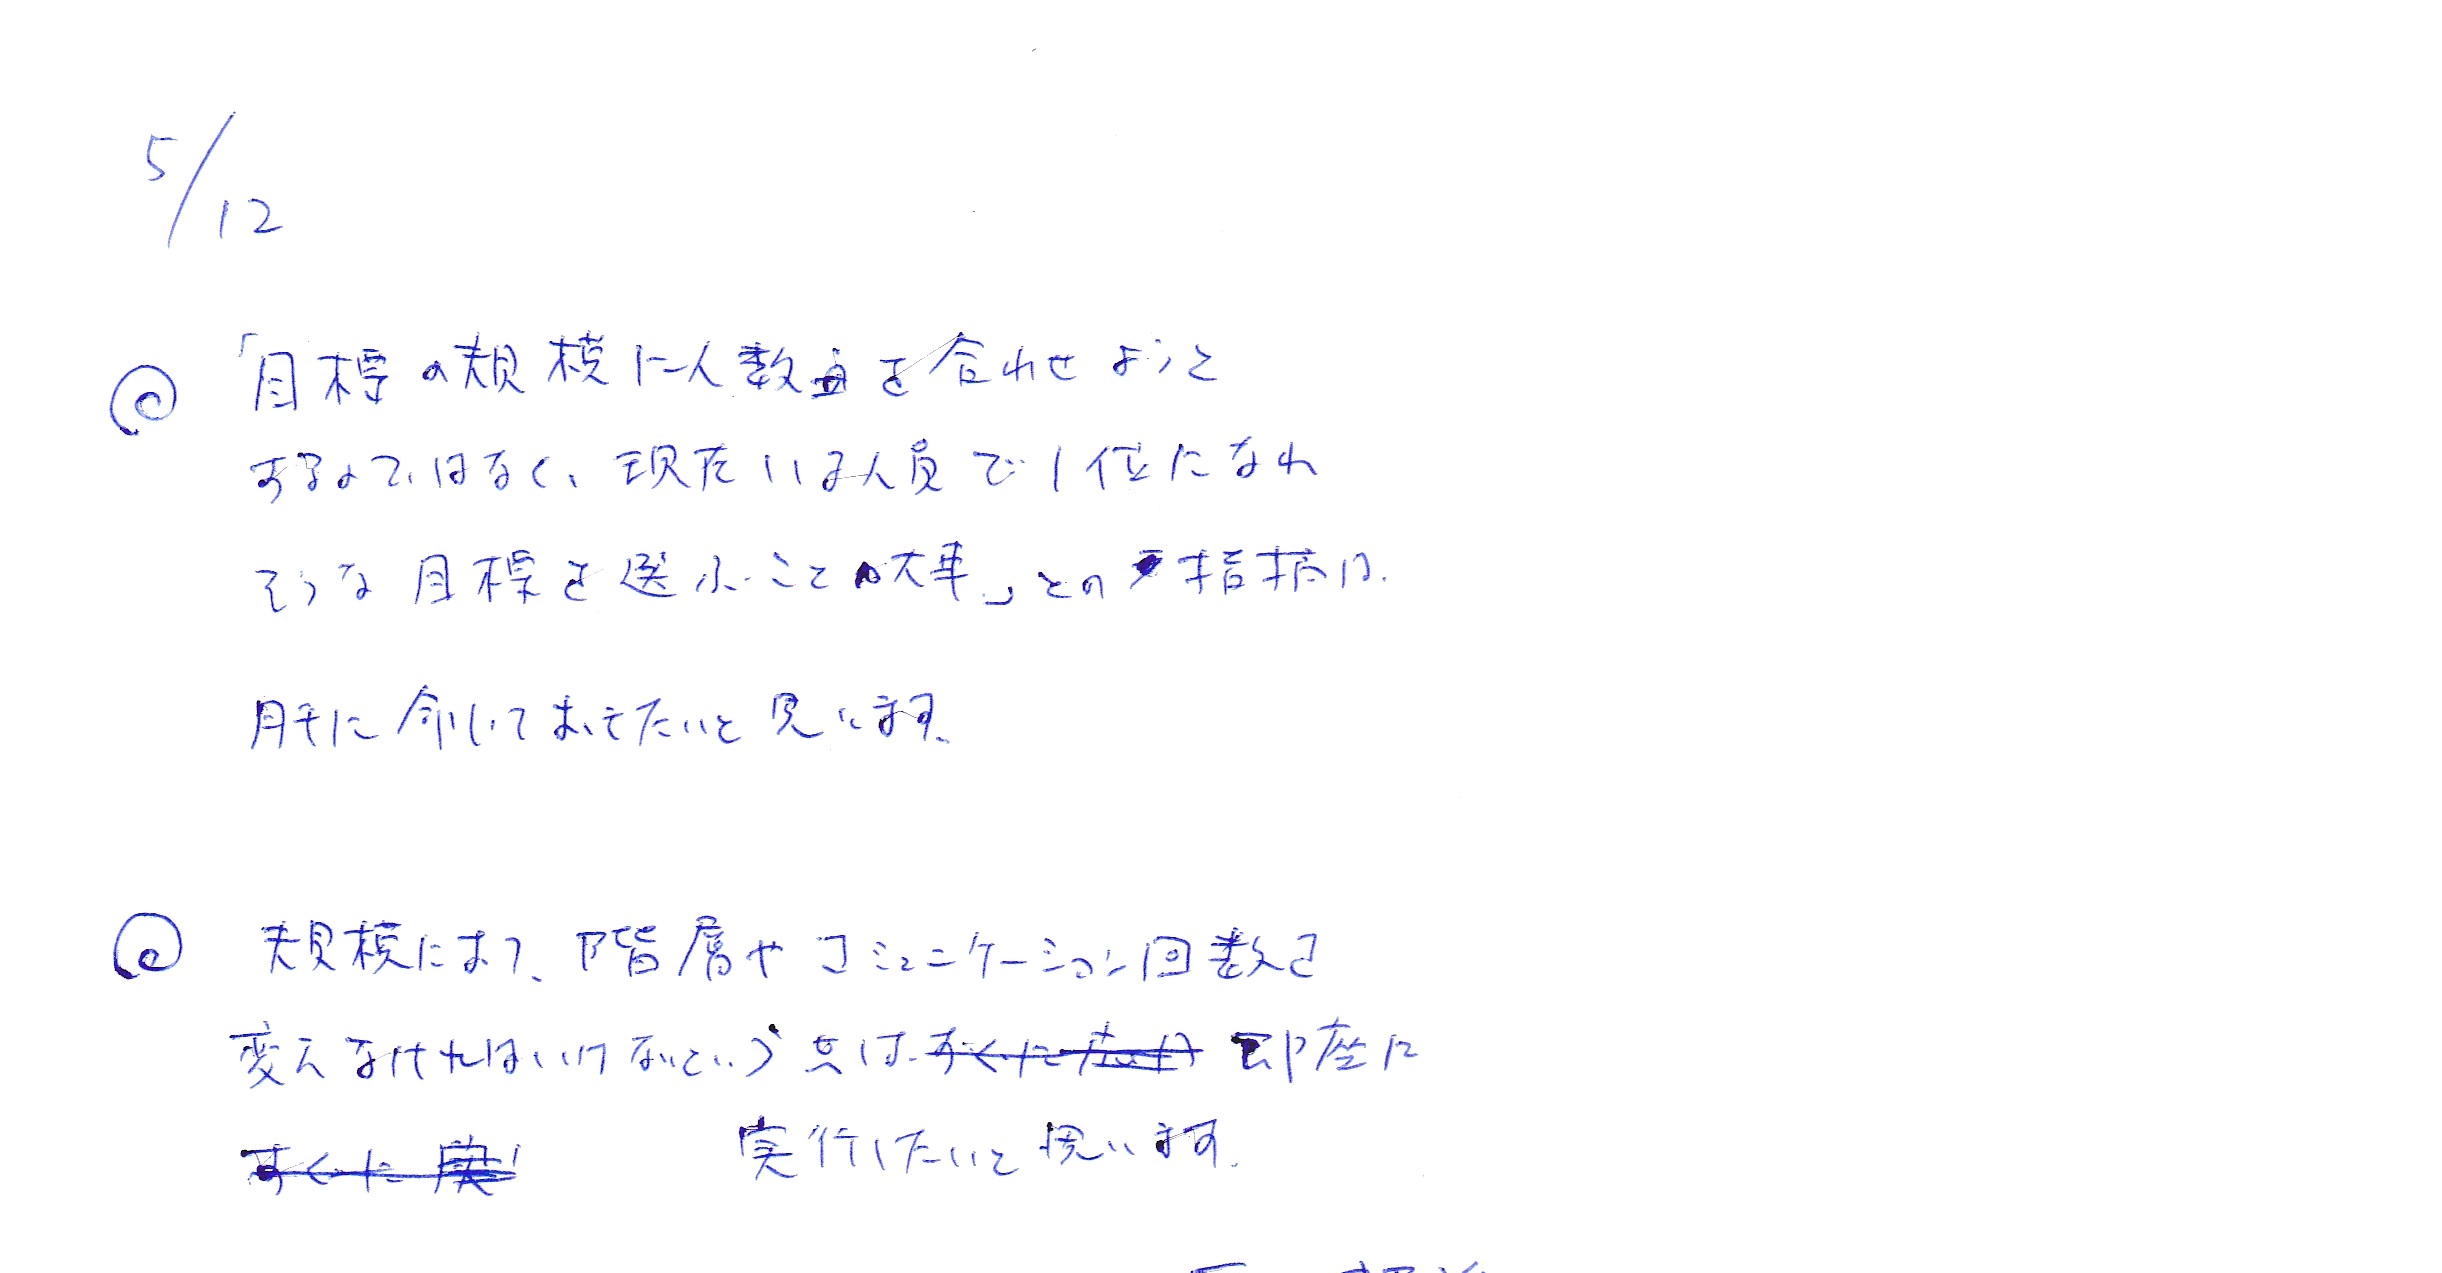 5/12
◎ 「目標の規模に人数を合わせようと
するのではなく、現在いる人員で1位になれ
そうな目標を選ぶことが大事」との指摘は、
肝に命じておきたいと思います。
◎ 規模によって、階層やコミュニケーション回数を
変えなければいけないという点は、即座に
実行したいと思います。